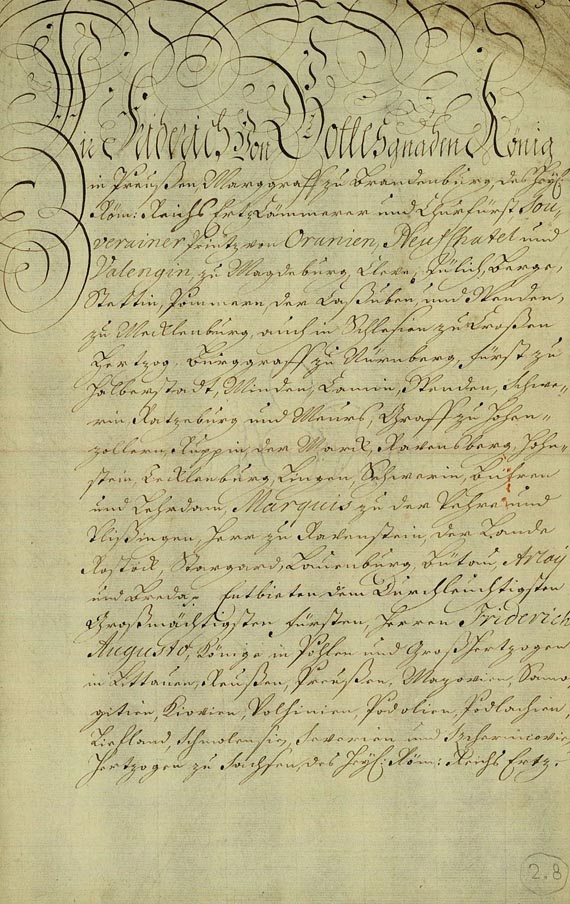 Wir Friderich Von Gottes gnaden König
in Preußen, Marggraff zu Brandenburg, des Heyl:
Röm: Reichs Ertz Cammerer und Churfürst, Sou-
verainer Printz von Oranien, Neufchatel und
Valengin, zu Magdeburg, Cleve, Jülich, Berge,
Stettin, Pommern, der Caßuben und Wenden,
zu Mecklenburg, auch in Schlesien zu Croßen
Hertzog, Burggraff zu Nürnberg, Fürst zu
Halberstadt, Minden, Camin, Wenden, Schwe-
rin, Ratzeburg und Meurs, Graff zu Hohen-
zollern, Ruppin, der Marck, Ravensberg, Hohn-
stein, Tecklenburg, Lingen, Schwerin, Bühren
und Lehrdam, Marquis zu der Vehre und
Vlißingen, Herr zu Ravenstein, der Lande
Rostock, Stargard, Lauenburg, Bütau, Arlay
und Breda. Entbieten dem Durchleuchtigsten
Großmächtigsten Fürsten, Herren Friderich
Augusto, Könige in Pohlen und Groß Hertzogen
in Littauen, Reußen, Preußen, Mazovien, Samo-
gitien, Kiovien, Volhinien, Podolien, Podlachien,
Liefland, Schmolensien, Severien und Zschernicovien,
Hertzogen zu Sachsen, des Heyl: Röm: Reichs Ertz-
2.8